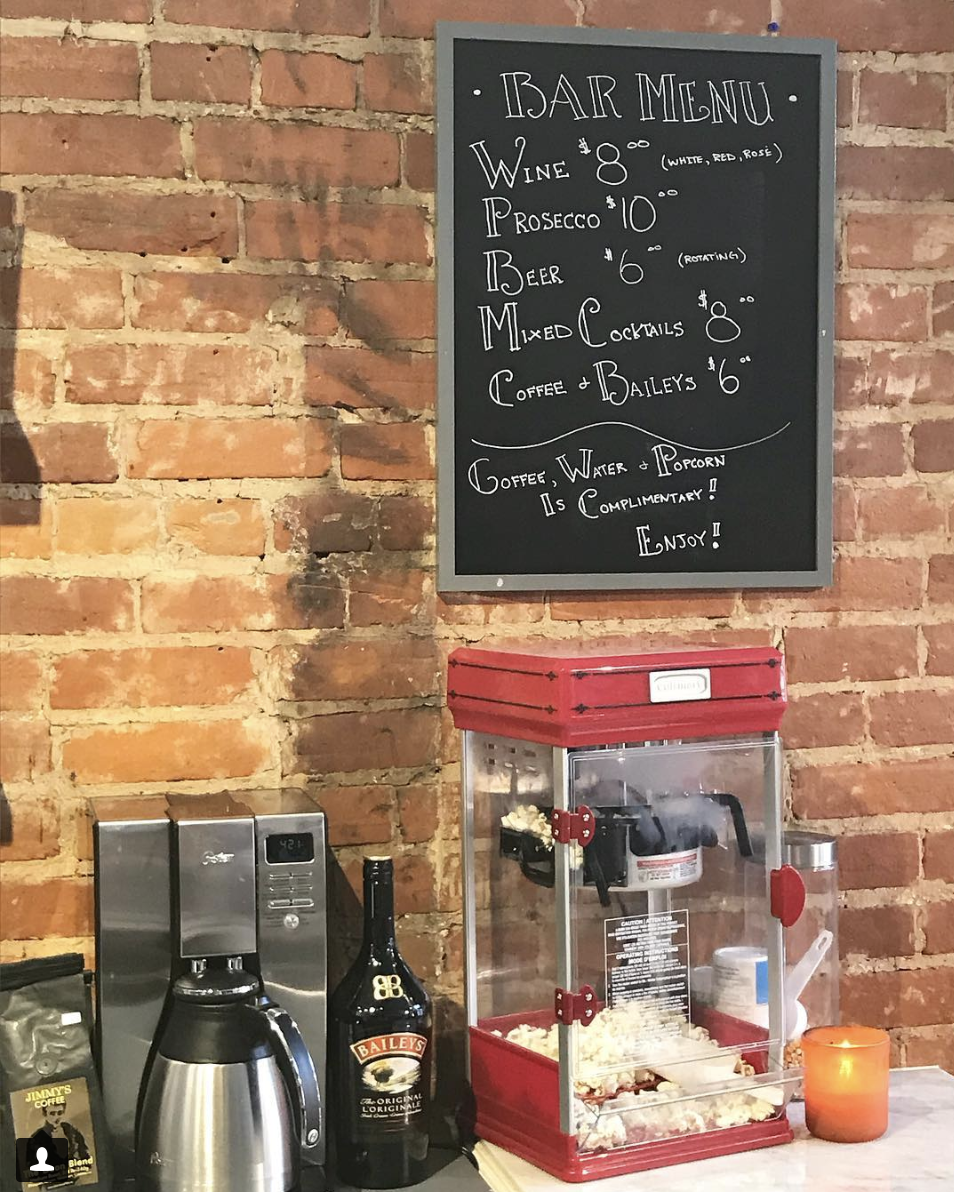 • BAR MENU •
WINE $8.00 (WHITE, RED, ROSÉ)
PROSECCO $10.00
BEER $6.00 (ROTATING)
MIXED COCKTAILS $8.00
COFFEE & BAILEYS $6.00
COFFEE, WATER & POPCORN
IS COMPLIMENTARY!
ENJOY!
Oster
4:21
BAILEYS
The ORIGINAL
L'ORIGINALE
CAUTION / ATTENTION
OPERATING INSTRUCTIONS
MODE D'EMPLOI
JIMMY'S
COFFEE
Blend